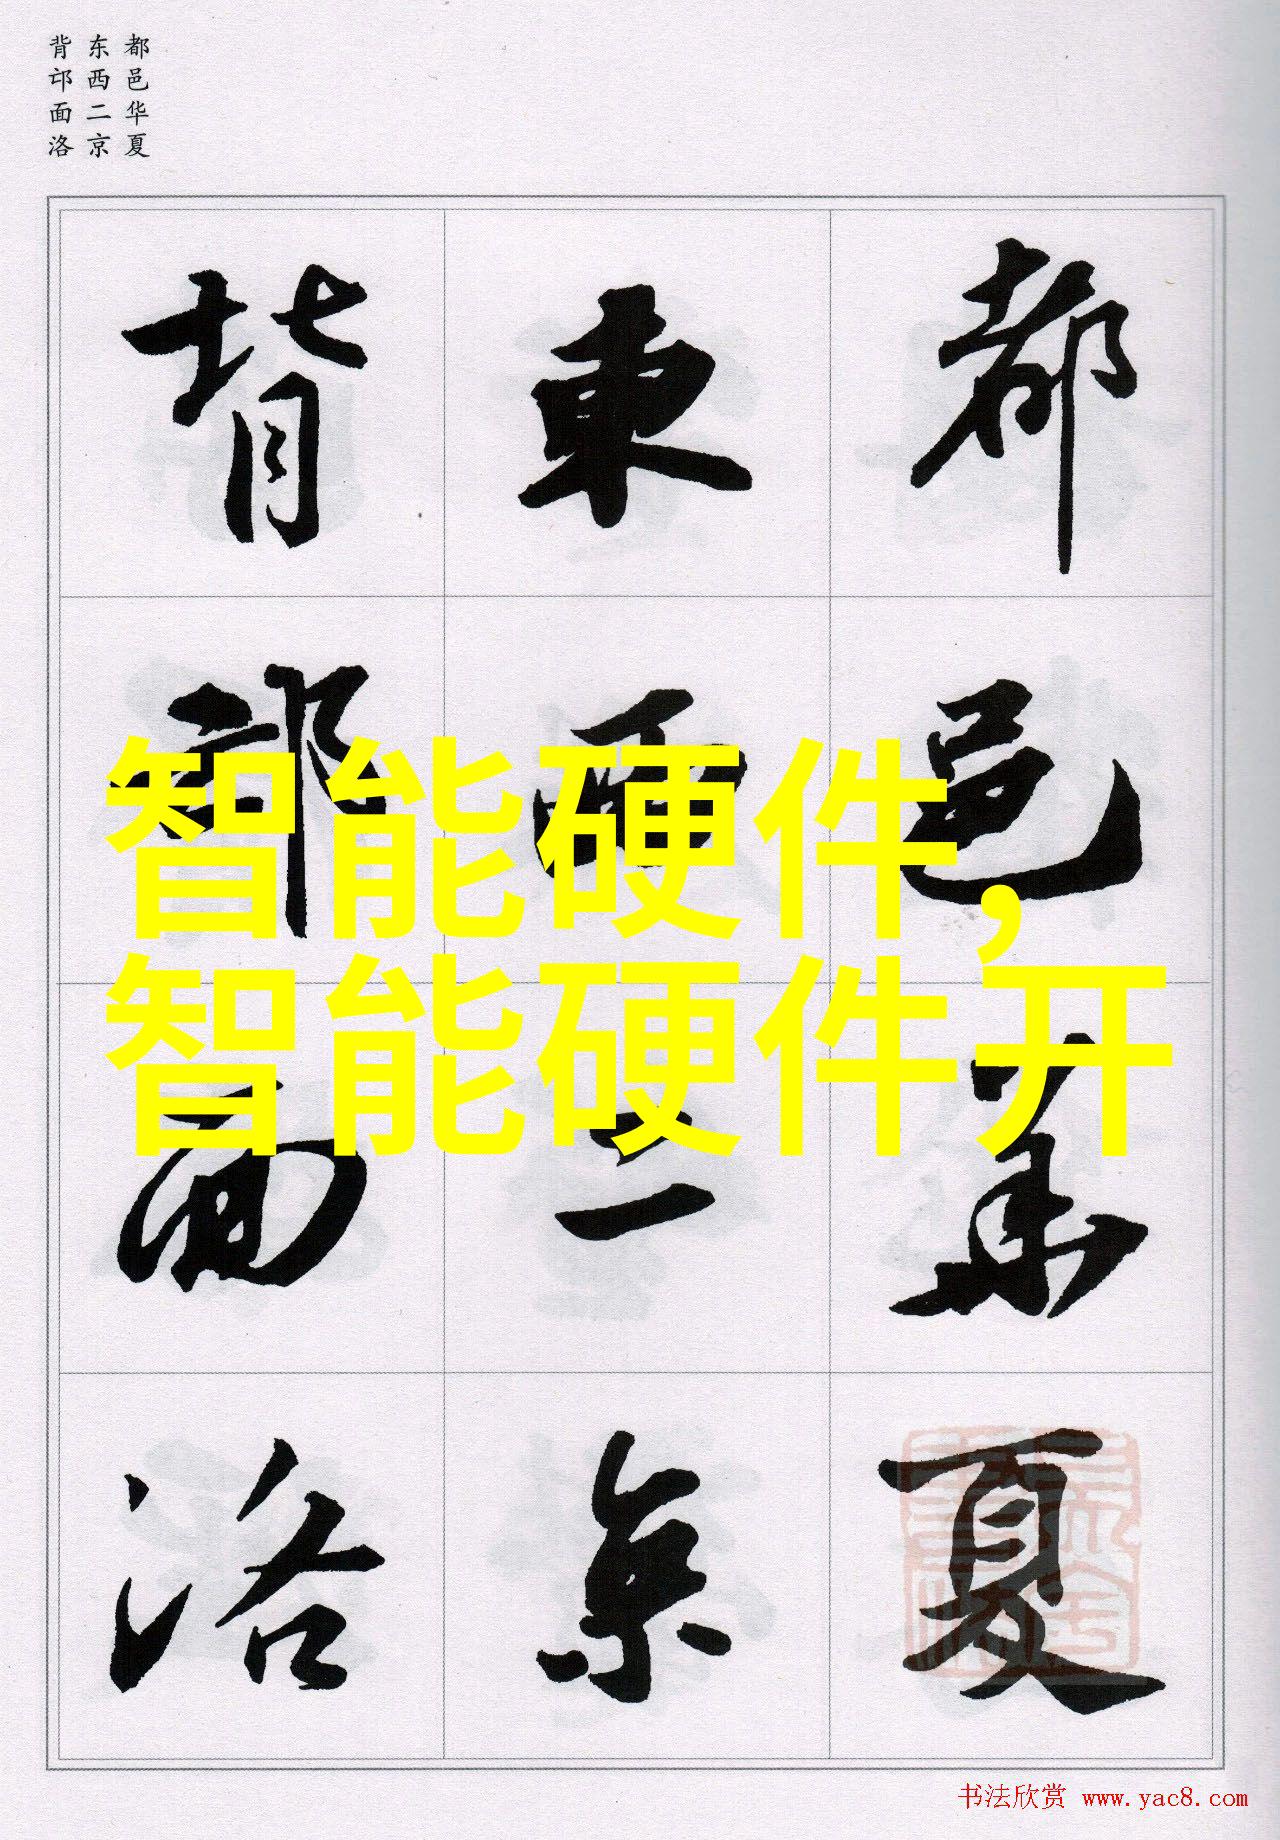 都邑华夏
东西二京
背邙面洛
都邑華夏
東西二京
背邙面洛
智能硬件,
智能硬件开
书法欣赏 www.yac8.com